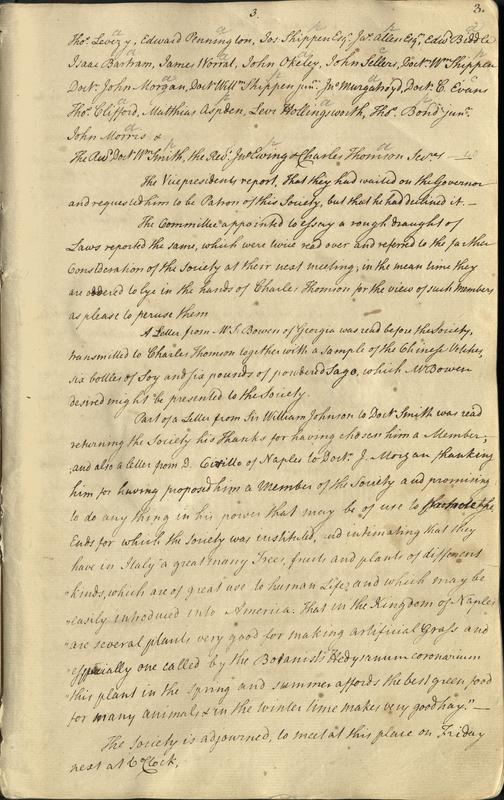 3. 3.
Thos. Levezy, Edward Pennington, Jos Shippen Esqr. Jas. Allen Esqr. Edwd Biddle
Isaac Bartram, James Worral, John Okeley, John Sellers, Doctr. Wm. Shippen
Doctr. John Morgan, Doctr. Willm. Shippen junr. Jno. Murgatroyd, Doctr. C. Evans
Thos. Clifford, Matthias Aspden, Levi Hollingsworth, Thos. Bond junr.
John Morris &
The Revd. Doctr. Wm. Smith, the Revd. Jno Ewing & Charles Thomson Secres
The Vicepresidents report, That they had waited on the Governor
and requested him to be Patron of this Society, but that he had declined it. —
The Committee appointed to essay a rough draught of
Laws reported the same, which were twice read over and referred to the farther
Consideration of the Society at their next meeting; in the mean time they
are ordered to lye in the hands of Charles Thomson for the view of such Members
as please to peruse them
A Letter from Mr. S. Bowen of Georgia was read before the Society,
transmitted to Charles Thomson together with a sample of the Chinese Vetches,
six bottles of Soy and six pounds of powdered Sago, which Mr. Bowen
desired might be presented to the Society.
Part of a Letter from Sir William Johnson to Doctr. Smith was read
returning the Society his Thanks for having chosen him a Member;
and also a letter from D. Cirillo of Naples to Doctr. J. Morgan thanking
him for having proposed him a Member of the Society and promising
to do any thing in his power that may be of use to the
Ends for which the Society was instituted, and intimating that they
have in Italy "a great many Trees, fruits and plants of different
"kinds, which are of great use to human Life; and which may be
"easily introduced into America. That in the Kingdom of Naples
"are several plants very good for making artificial Grass and
"especially one called by the Botanists Hedysarum coronarium
"this plant in the Spring and summer affords the best green food
for many animals & in the winter time makes very good hay." —
The Society is adjourned, to meet at this place on Friday
next at 6 oClock.